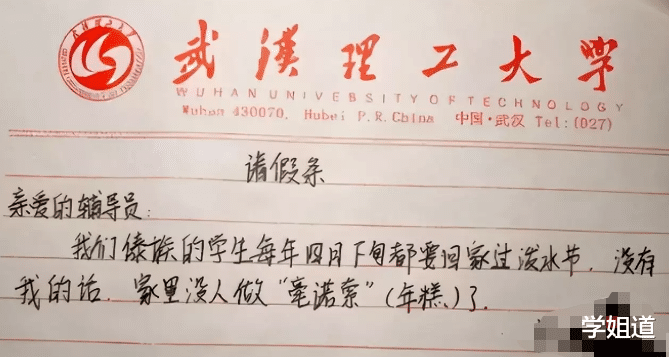 武漢理工大学
WUHAN UNIVERSITY OF TECHNOLOGY
Wuhan 430070, Hubei P.R.China 中国·武汉 Tel:(027)
请假条
亲爱的辅导员:
我们傣族的学生每年四月下旬都要回家过泼水节,没有
我的话,家里没人做“毫诺索”(年糕)了.
学姐道